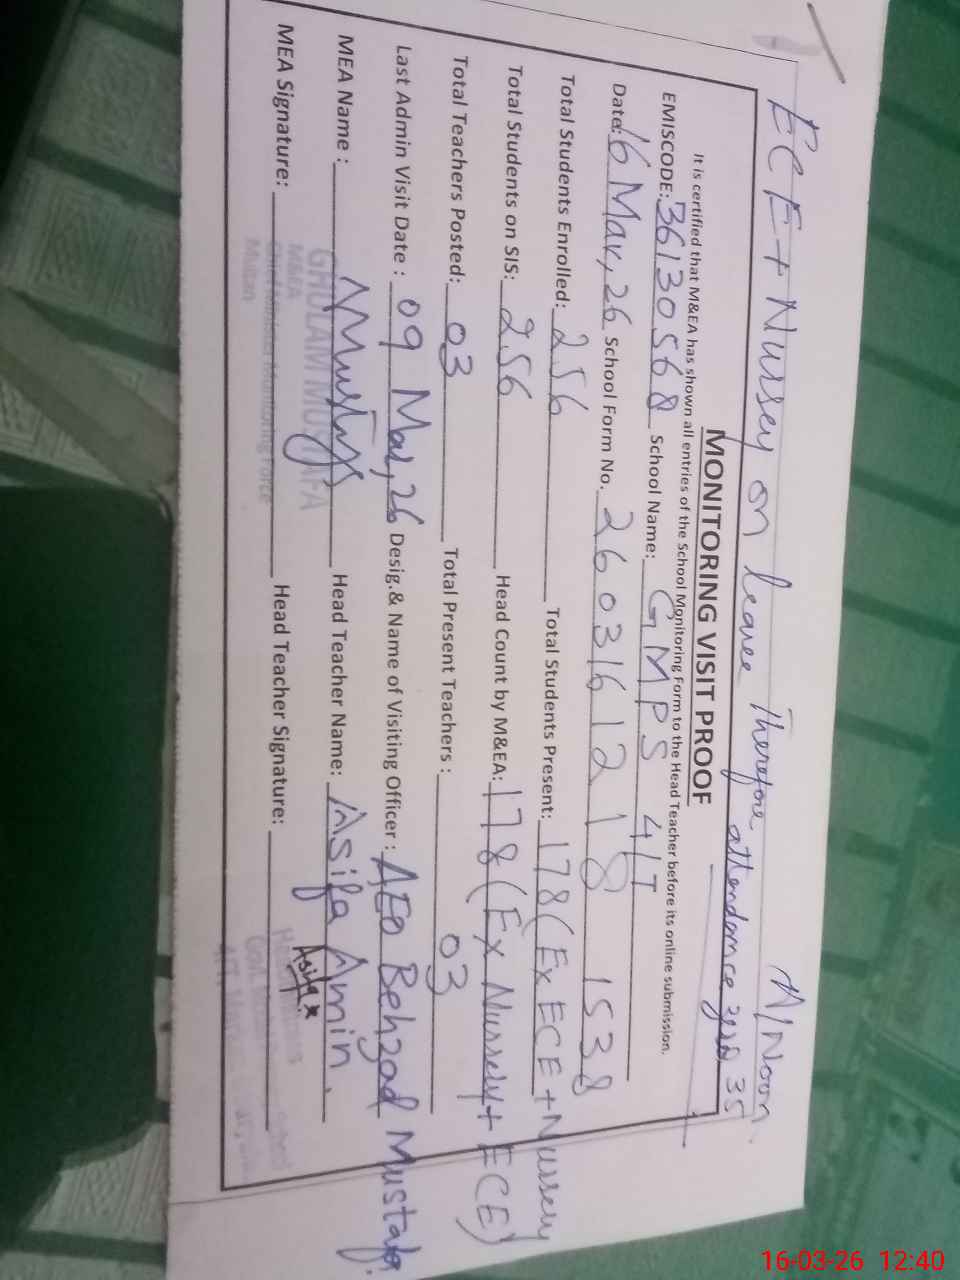 ECE + Nursey on leavee Therefore A/Noon.
attendance zero 35
MONITORING VISIT PROOF
It is certified that M&EA has shown all entries of the School Monitoring Form to the Head Teacher before its online submission.
EMISCODE: 36130568 School Name: GMPS 4/T
Date: 16 Mar, 26 School Form No. 2603161218 1538
Total Students Enrolled: 256 Total Students Present: 178 (Ex ECE + Nursery
Total Students on SIS: 256 Head Count by M&EA: 178 (Ex Nursely + ECE)
Total Teachers Posted: 03 Total Present Teachers : 03
Last Admin Visit Date : 09 Mar, 26 Desig.& Name of Visiting Officer : AEO Behzad Mustafa.
MEA Name : Head Teacher Name: Asifa Amin
MEA Signature: Head Teacher Signature:
GHULAM MUSTAFA
M&EA
Monitoring Force
Multan
16-03-26 12:40